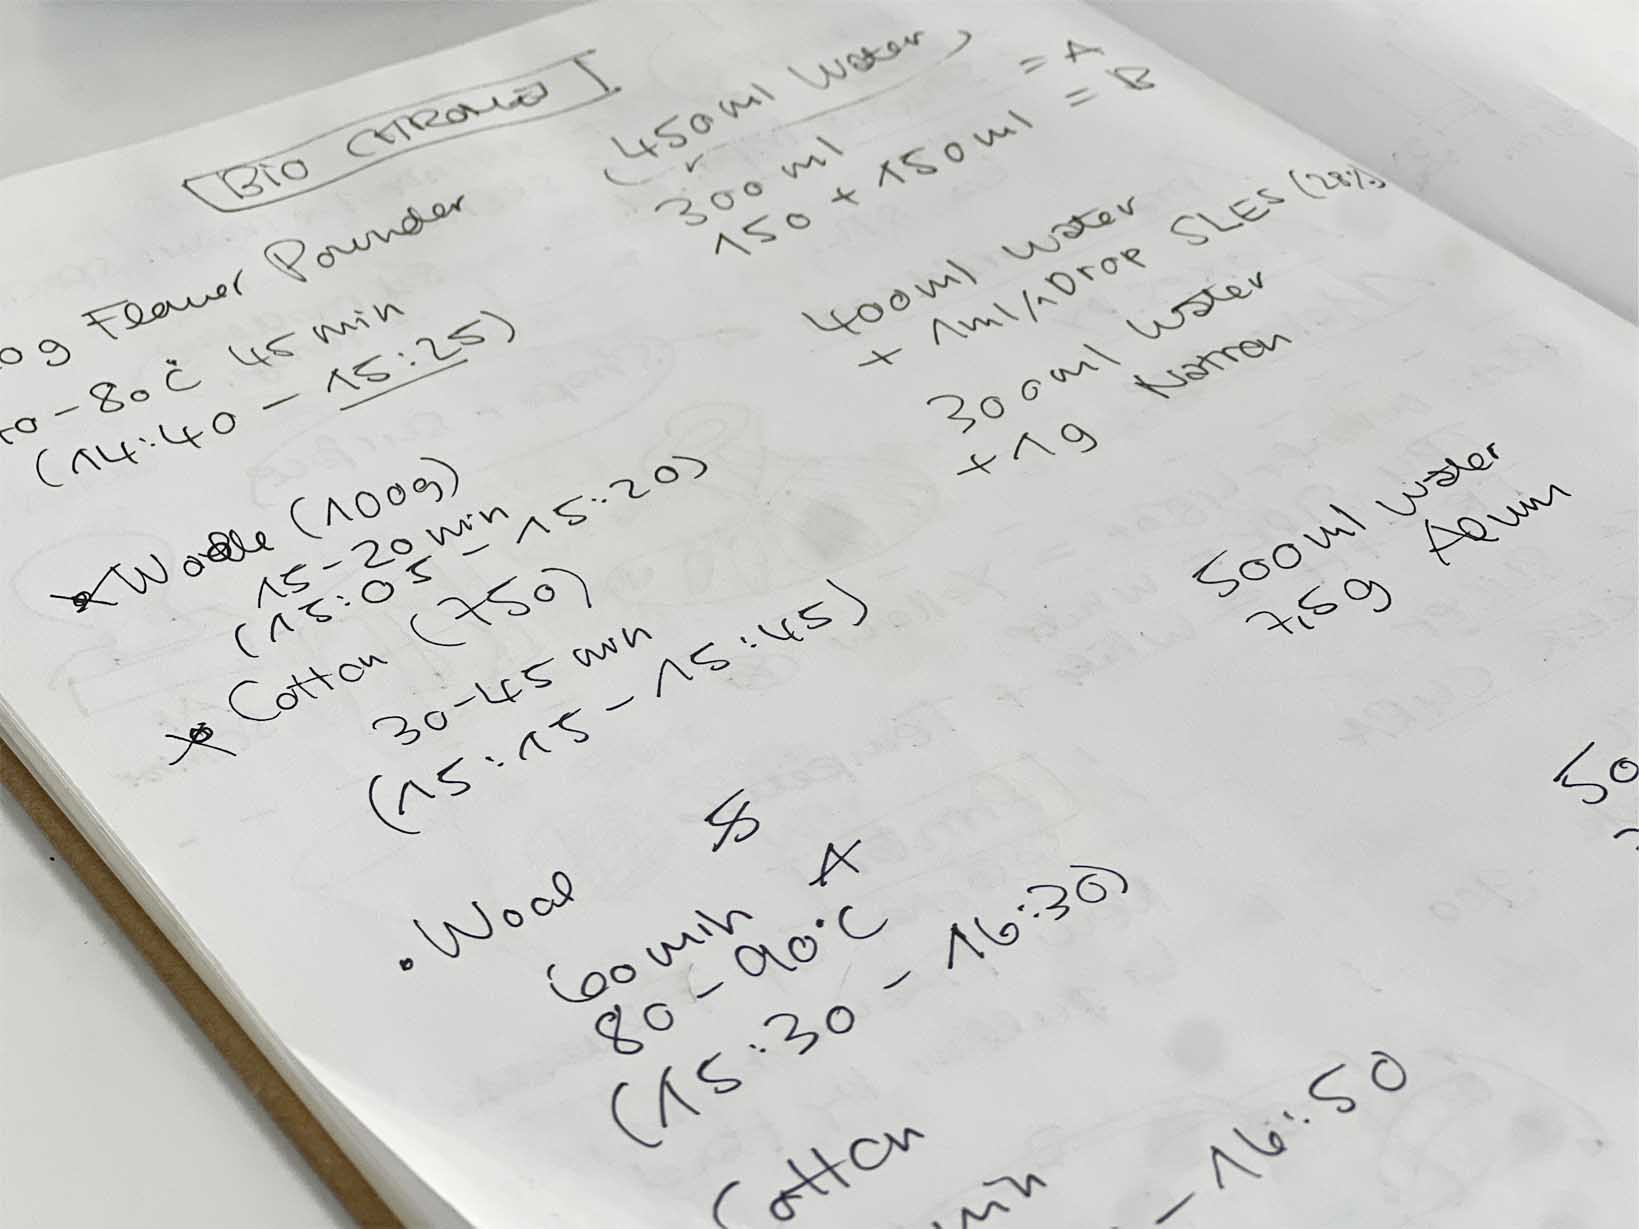 BIO CHROMO I
(450ml Water)
300ml = A
150 + 150ml = B
0g Flower Pounder
0-80°C 45 min
(14:40 - 15:25)
400ml Water
+ 1ml/1Drop SLES (28%)
* Woole (100g)
15-20 min
(15:05 - 15:20)
300ml Water
+ 1g Natron
* Cotton (750)
30-45 min
(15:15 - 15:45)
500ml Water
7,5g
• Wool
A
60 min
80-90°C
(15:30 - 16:30)
50
Cotton
min
- 16:50